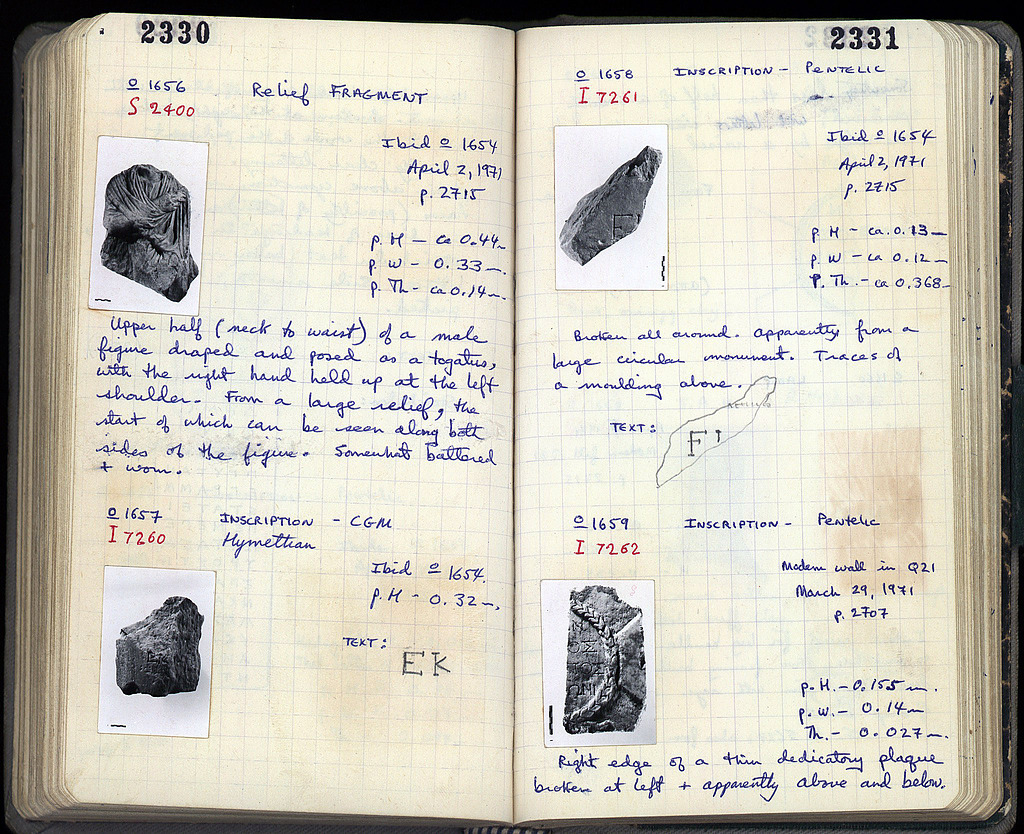 2330
o 1656 Relief FRAGMENT
S 2400
Ibid o 1654
April 2, 1971
p. 2715
p. H – ca 0.44 m
p. W – 0.33 m.
p. Th – ca 0.14 m.
Upper half (neck to waist) of a male
figure draped and posed as a togatus,
with the right hand held up at the left
shoulder. From a large relief, the
start of which can be seen along both
sides of the figure. Somewhat battered
+ worn.
o 1657 INSCRIPTION – CGM
I 7260 Hymettian
Ibid o 1654.
p. H – 0.32 m.
TEXT:
EK
2331
o 1658 INSCRIPTION – PENTELIC
I 7261
Ibid o 1654
April 2, 1971
p. 2715
p H – ca. 0.13 m
p. W – ca 0.12 m
P. Th. – ca 0.368 m
Broken all around. Apparently from a
large circular monument. Traces of
a moulding above.
TEXT:
o 1659 INSCRIPTION – Pentelic
I 7262
Modern wall in Q21
March 29, 1971
p. 2707
p. H. – 0.155 m.
p. W. – 0.14 m
Th. – 0.027 m.
Right edge of a thin dedicatory plaque
broken at left + apparently above and below.